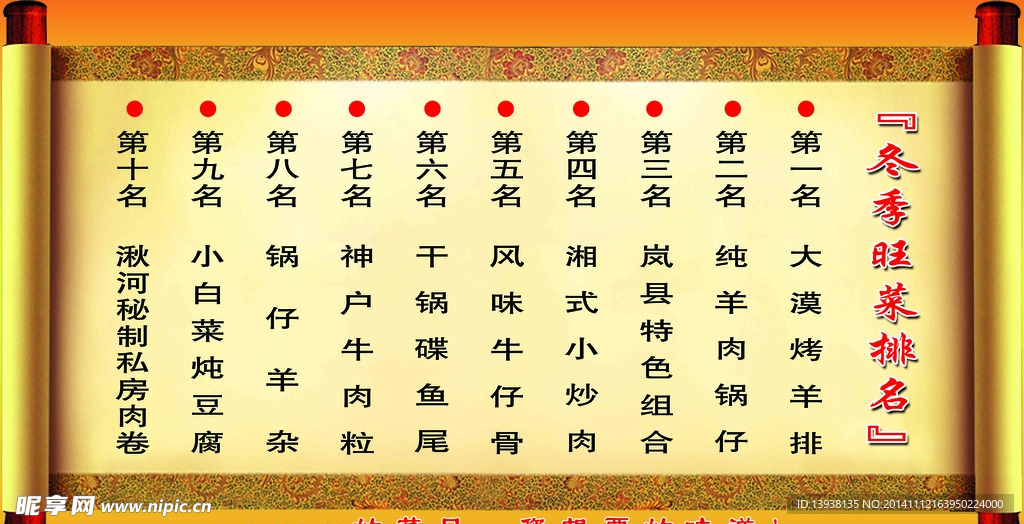 『冬季旺菜排名』
第一名 大漠烤羊排
第二名 纯羊肉锅仔
第三名 岚县特色组合
第四名 湘式小炒肉
第五名 风味牛仔骨
第六名 干锅碟鱼尾
第七名 神户牛肉粒
第八名 锅仔羊杂
第九名 小白菜炖豆腐
第十名 湫河秘制私房肉卷
昵享网 www.nipic.cn
ID:13938135 NO:20141112163950224000